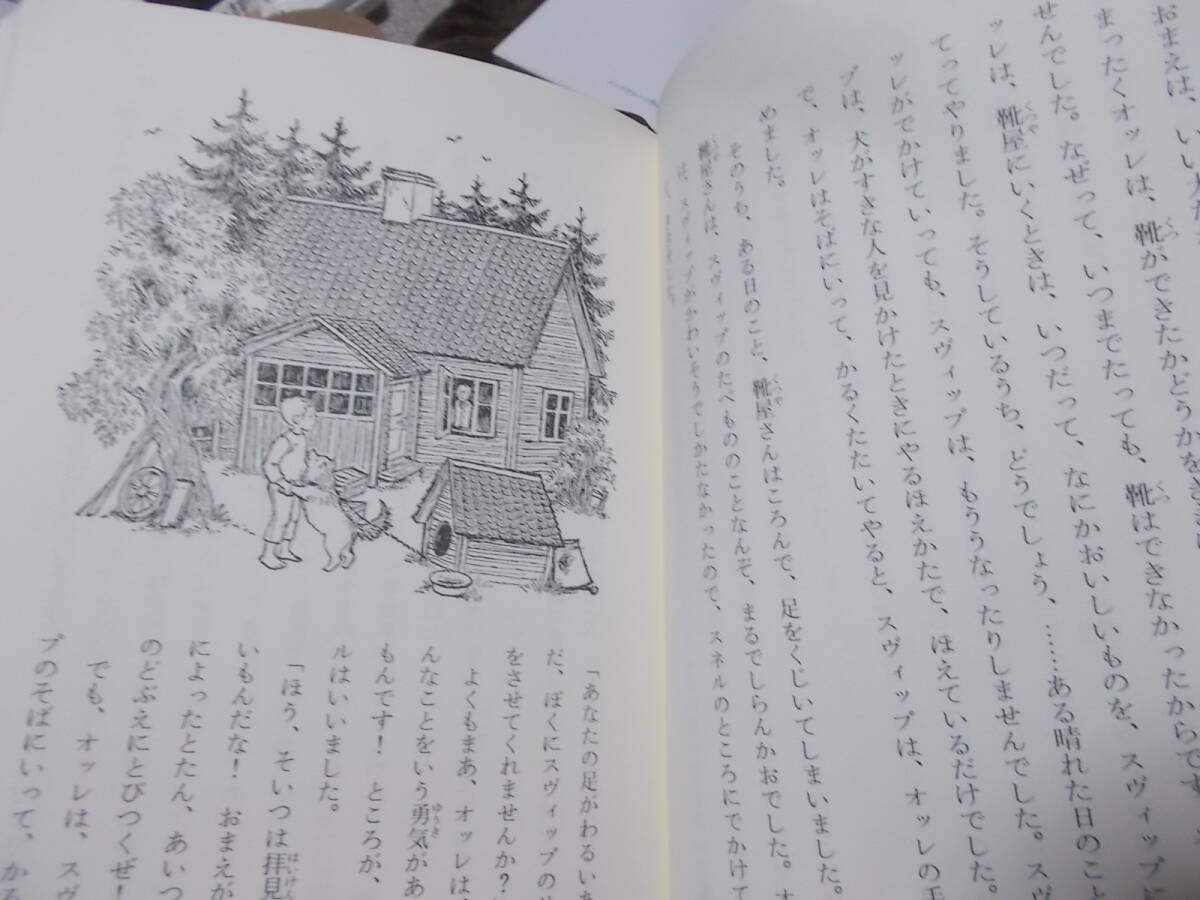 おまえは、いい
まったくオッレは、靴ができたかどうかをき
せんでした。なぜって、いつまでたっても、靴はできなかったからです
ッレは、靴屋にいくときは、いつだって、なにかおいしいものを、スヴィップに
てってやりました。そうしているうち、どうでしょう、……ある晴れた日のこと
ッレがでかけていっても、スヴィップは、もううなったりしませんでした。スヴ
プは、犬がすきな人を見かけたときにやるほえかたで、ほえているだけでした。
で、オッレはそばにいって、かるくたたいてやると、スヴィップは、オッレの手
めました。
そのうち、ある日のこと、靴屋さんはころんで、足をくじいてしまいました。
靴屋さんは、スヴィップのたべもののことなんぞ、まるでしらんかおでした。オ
は、スヴィップがかわいそうでしかたなかったので、スネルのところにでかけて
「あなたの足がわるいあ
だ、ぼくにスヴィップのせ
をさせてくれませんか？
よくもまあ、オッレは
んなことをいう勇気があ
もんです！ ところが、
ルはいいました。
「ほう、そいつは拝見
いもんだな！ おまえが
によったとたん、あいつ
のどぶえにとびつくぜ！
でも、オッレは、スヴ
プのそばにいって、かる